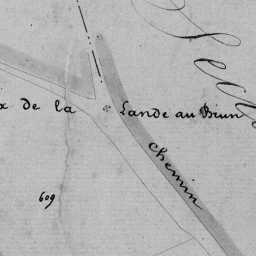 x de la Lande au Brun
Chemin
609